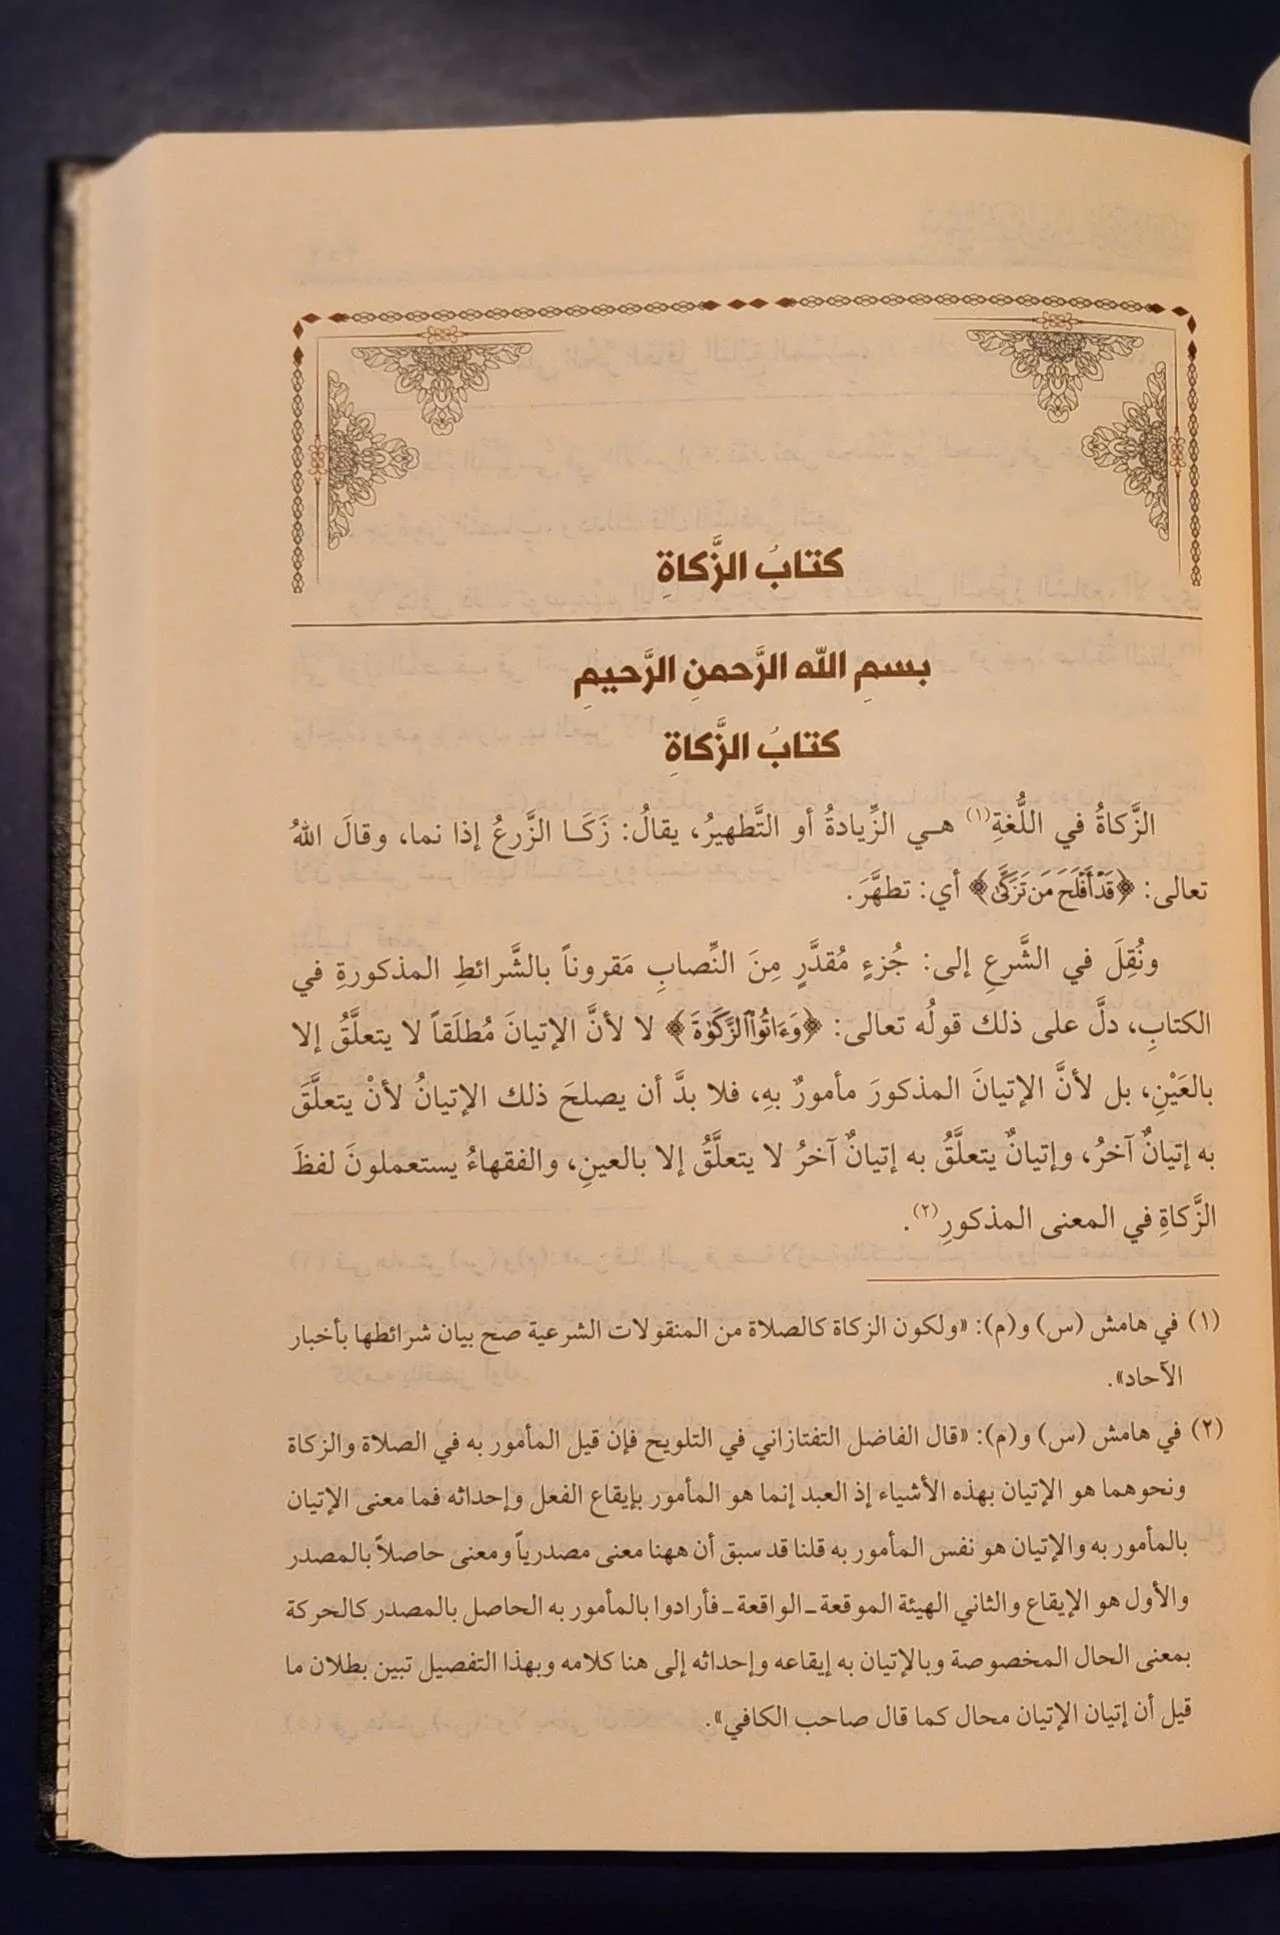 كتابُ الزَّكاةِ
بسمِ اللّه الرَّحمنِ الرَّحيمِ
كتابُ الزَّكاةِ
الزَّكاةُ في اللُّغةِ(١) هـي الزِّيادةُ أو التَّطهيرُ، يقالُ: زَكَـا الزَّرعُ إذا نما، وقالَ اللهُ
تعالى: ﴿قَدْ أَفْلَحَ مَن تَزَكَّىٰ﴾ أي: تطهَّرَ.
ونُقِلَ في الشَّرعِ إلى: جُزءٍ مُقدَّرٍ مِنَ النِّصابِ مَقروناً بالشَّرائطِ المذكورةِ في
الكتابِ، دلَّ على ذلك قولُه تعالى: ﴿وَءَاتُوا۟ ٱلزَّكَوٰةَ﴾ لا لأنَّ الإتيانَ مُطلَقاً لا يتعلَّقُ إلا
بالعَيْنِ، بل لأنَّ الإتيانَ المذكورَ مأمورٌ بهِ، فلا بدَّ أن يصلحَ ذلك الإتيانُ لأنْ يتعلَّقَ
به إتيانٌ آخرُ، وإتيانٌ يتعلَّقُ به إتيانٌ آخرُ لا يتعلَّقُ إلا بالعينِ، والفقهاءُ يستعملونَ لفظَ
الزَّكاةِ في المعنى المذكورِ(٢).
(١) في هامش (س) و(م): «ولكون الزكاة كالصلاة من المنقولات الشرعية صح بيان شرائطها بأخبار
الآحاد».
(٢) في هامش (س) و(م): «قال الفاضل التفتازاني في التلويح فإن قيل المأمور به في الصلاة والزكاة
ونحوهما هو الإتيان بهذه الأشياء إذ العبد إنما هو المأمور بإيقاع الفعل وإحداثه فما معنى الإتيان
بالمأمور به والإتيان هو نفس المأمور به قلنا قد سبق أن ههنا معنى مصدرياً ومعنى حاصلاً بالمصدر
والأول هو الإيقاع والثاني الهيئة الموقعة ـ الواقعة ـ فأرادوا بالمأمور به الحاصل بالمصدر كالحركة
بمعنى الحال المخصوصة وبالإتيان به إيقاعه وإحداثه إلى هنا كلامه وبهذا التفصيل تبين بطلان ما
قيل أن إتيان الإتيان محال كما قال صاحب الكافي».